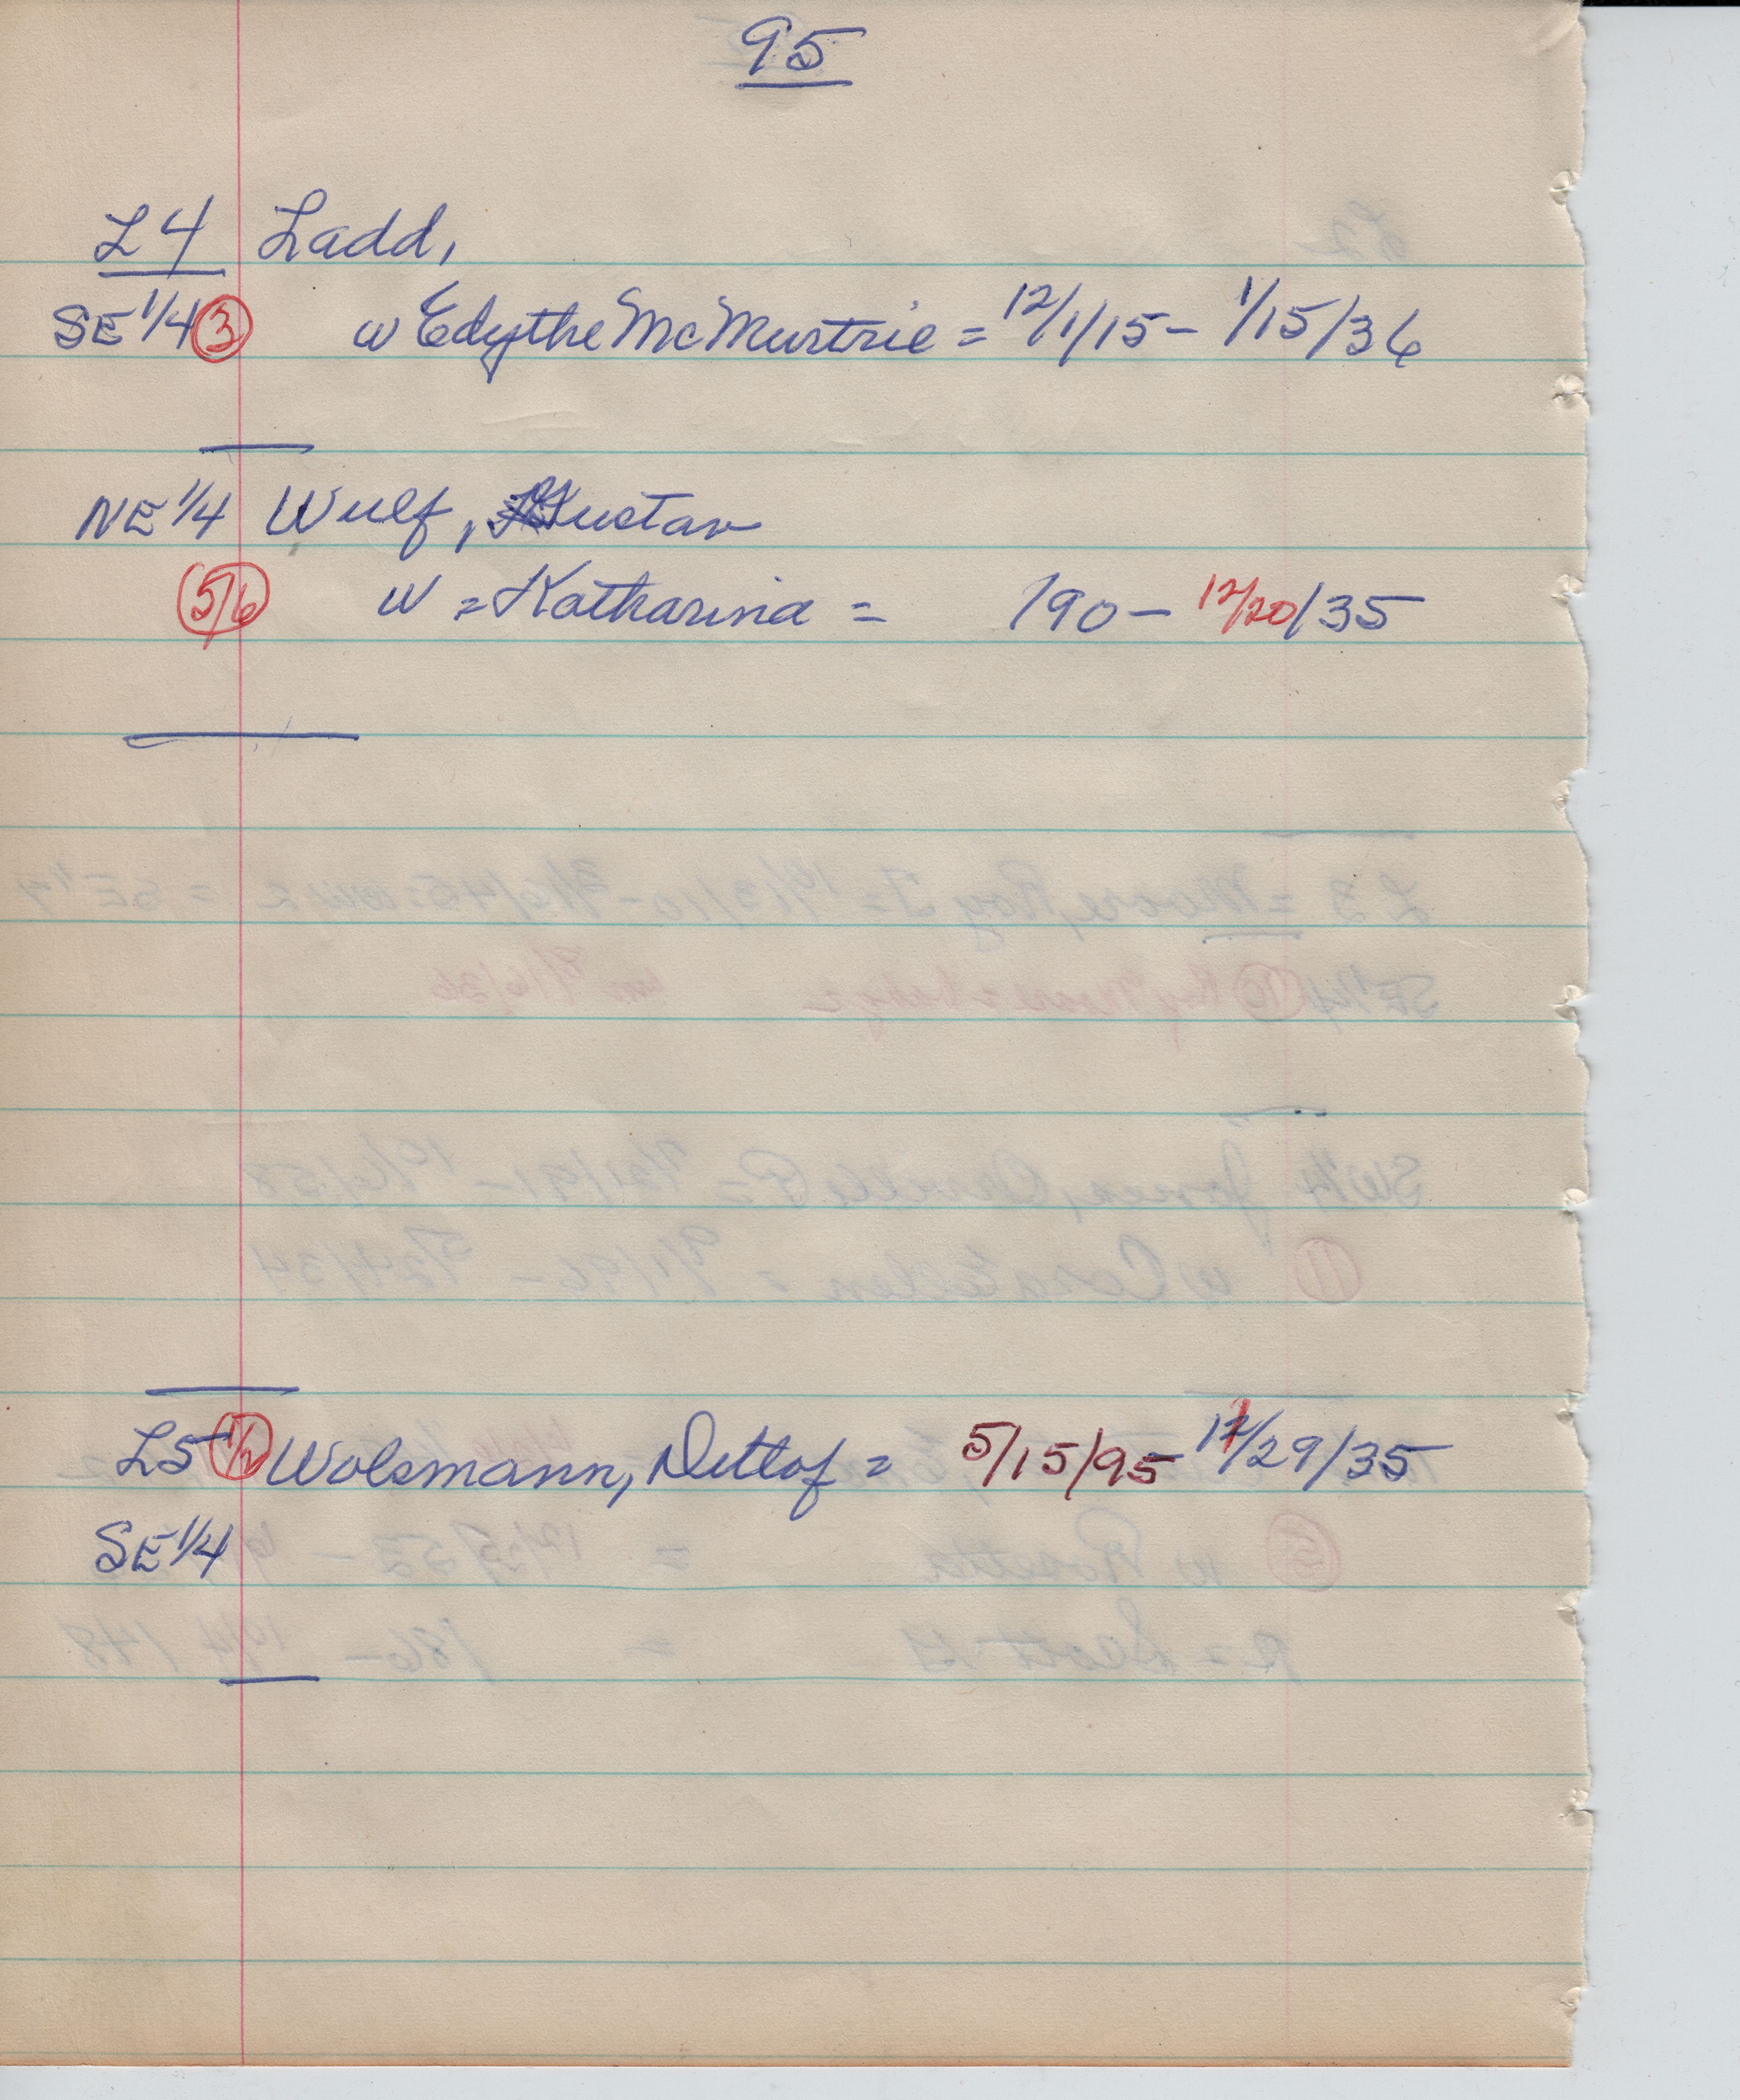 95
L4 Ladd,
SE 1/4 3 w Edythe McMurtrie = 12/1/15 - 1/15/36
NE 1/4 Wulf, Gustav
5/6 w = Katharina = /90 - 12/20/35
L5 1/2 Wolsmann, Detlof = 5/15/95 - /29/35
SE 1/4